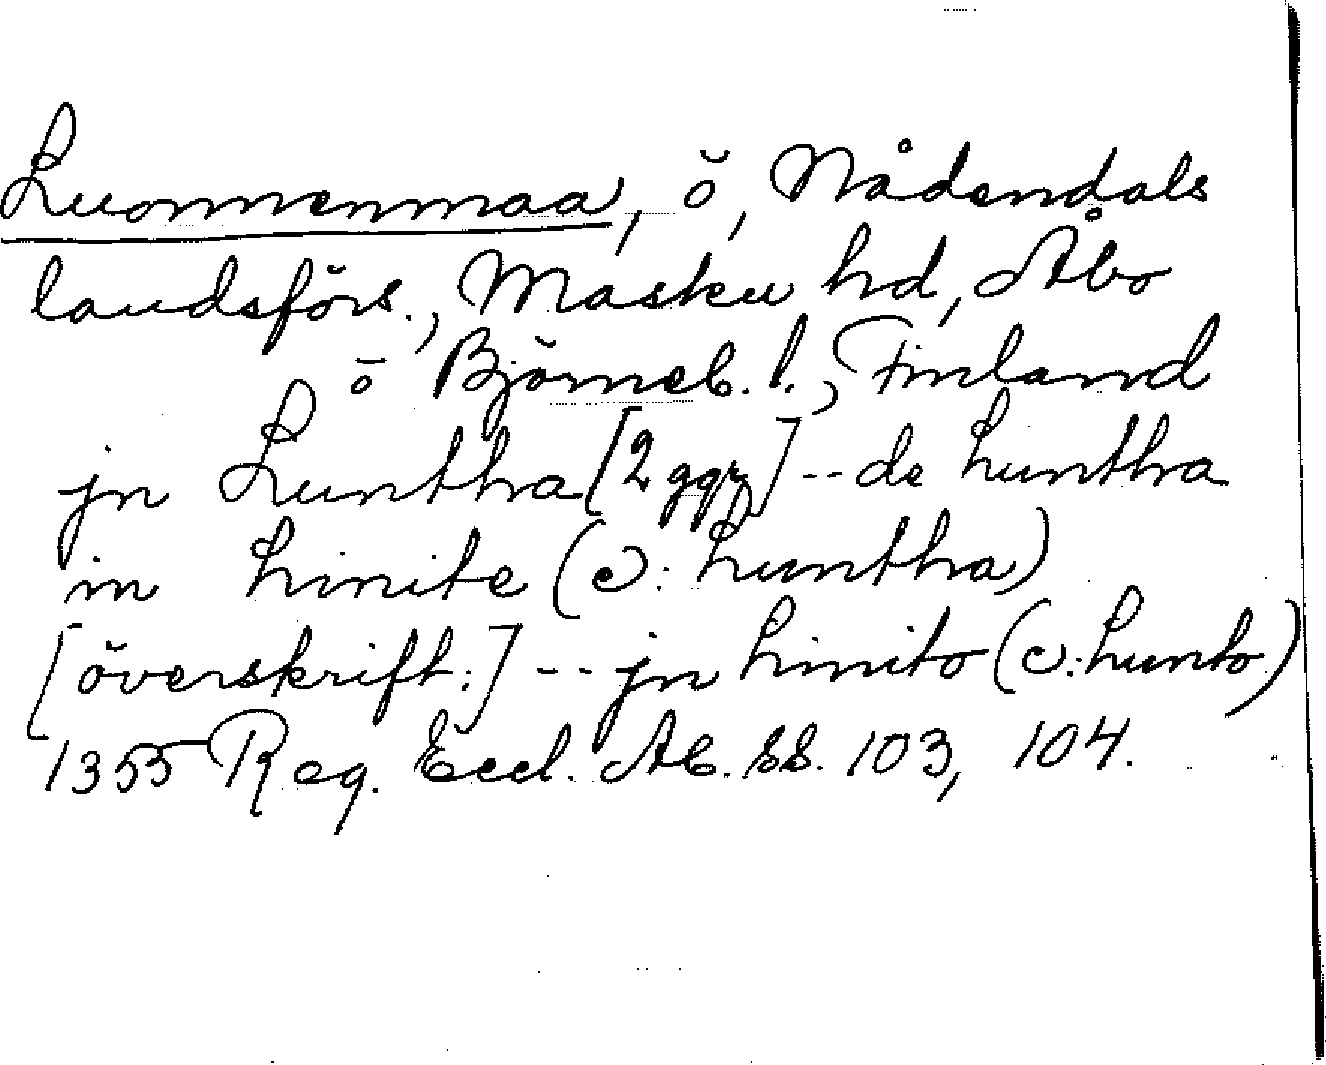 Luonnenmaa, ö, Nådendals
landsförs., Masku hd, Åbo
o Björneb. l., Finland
jn Luntha [2 ggr] -- de Luntha
in Linite (ɔ: Luntha)
[överskrift:] -- jn Linito (ɔ: Lunto)
1355 Reg. Eccl. Ab. ss. 103, 104.